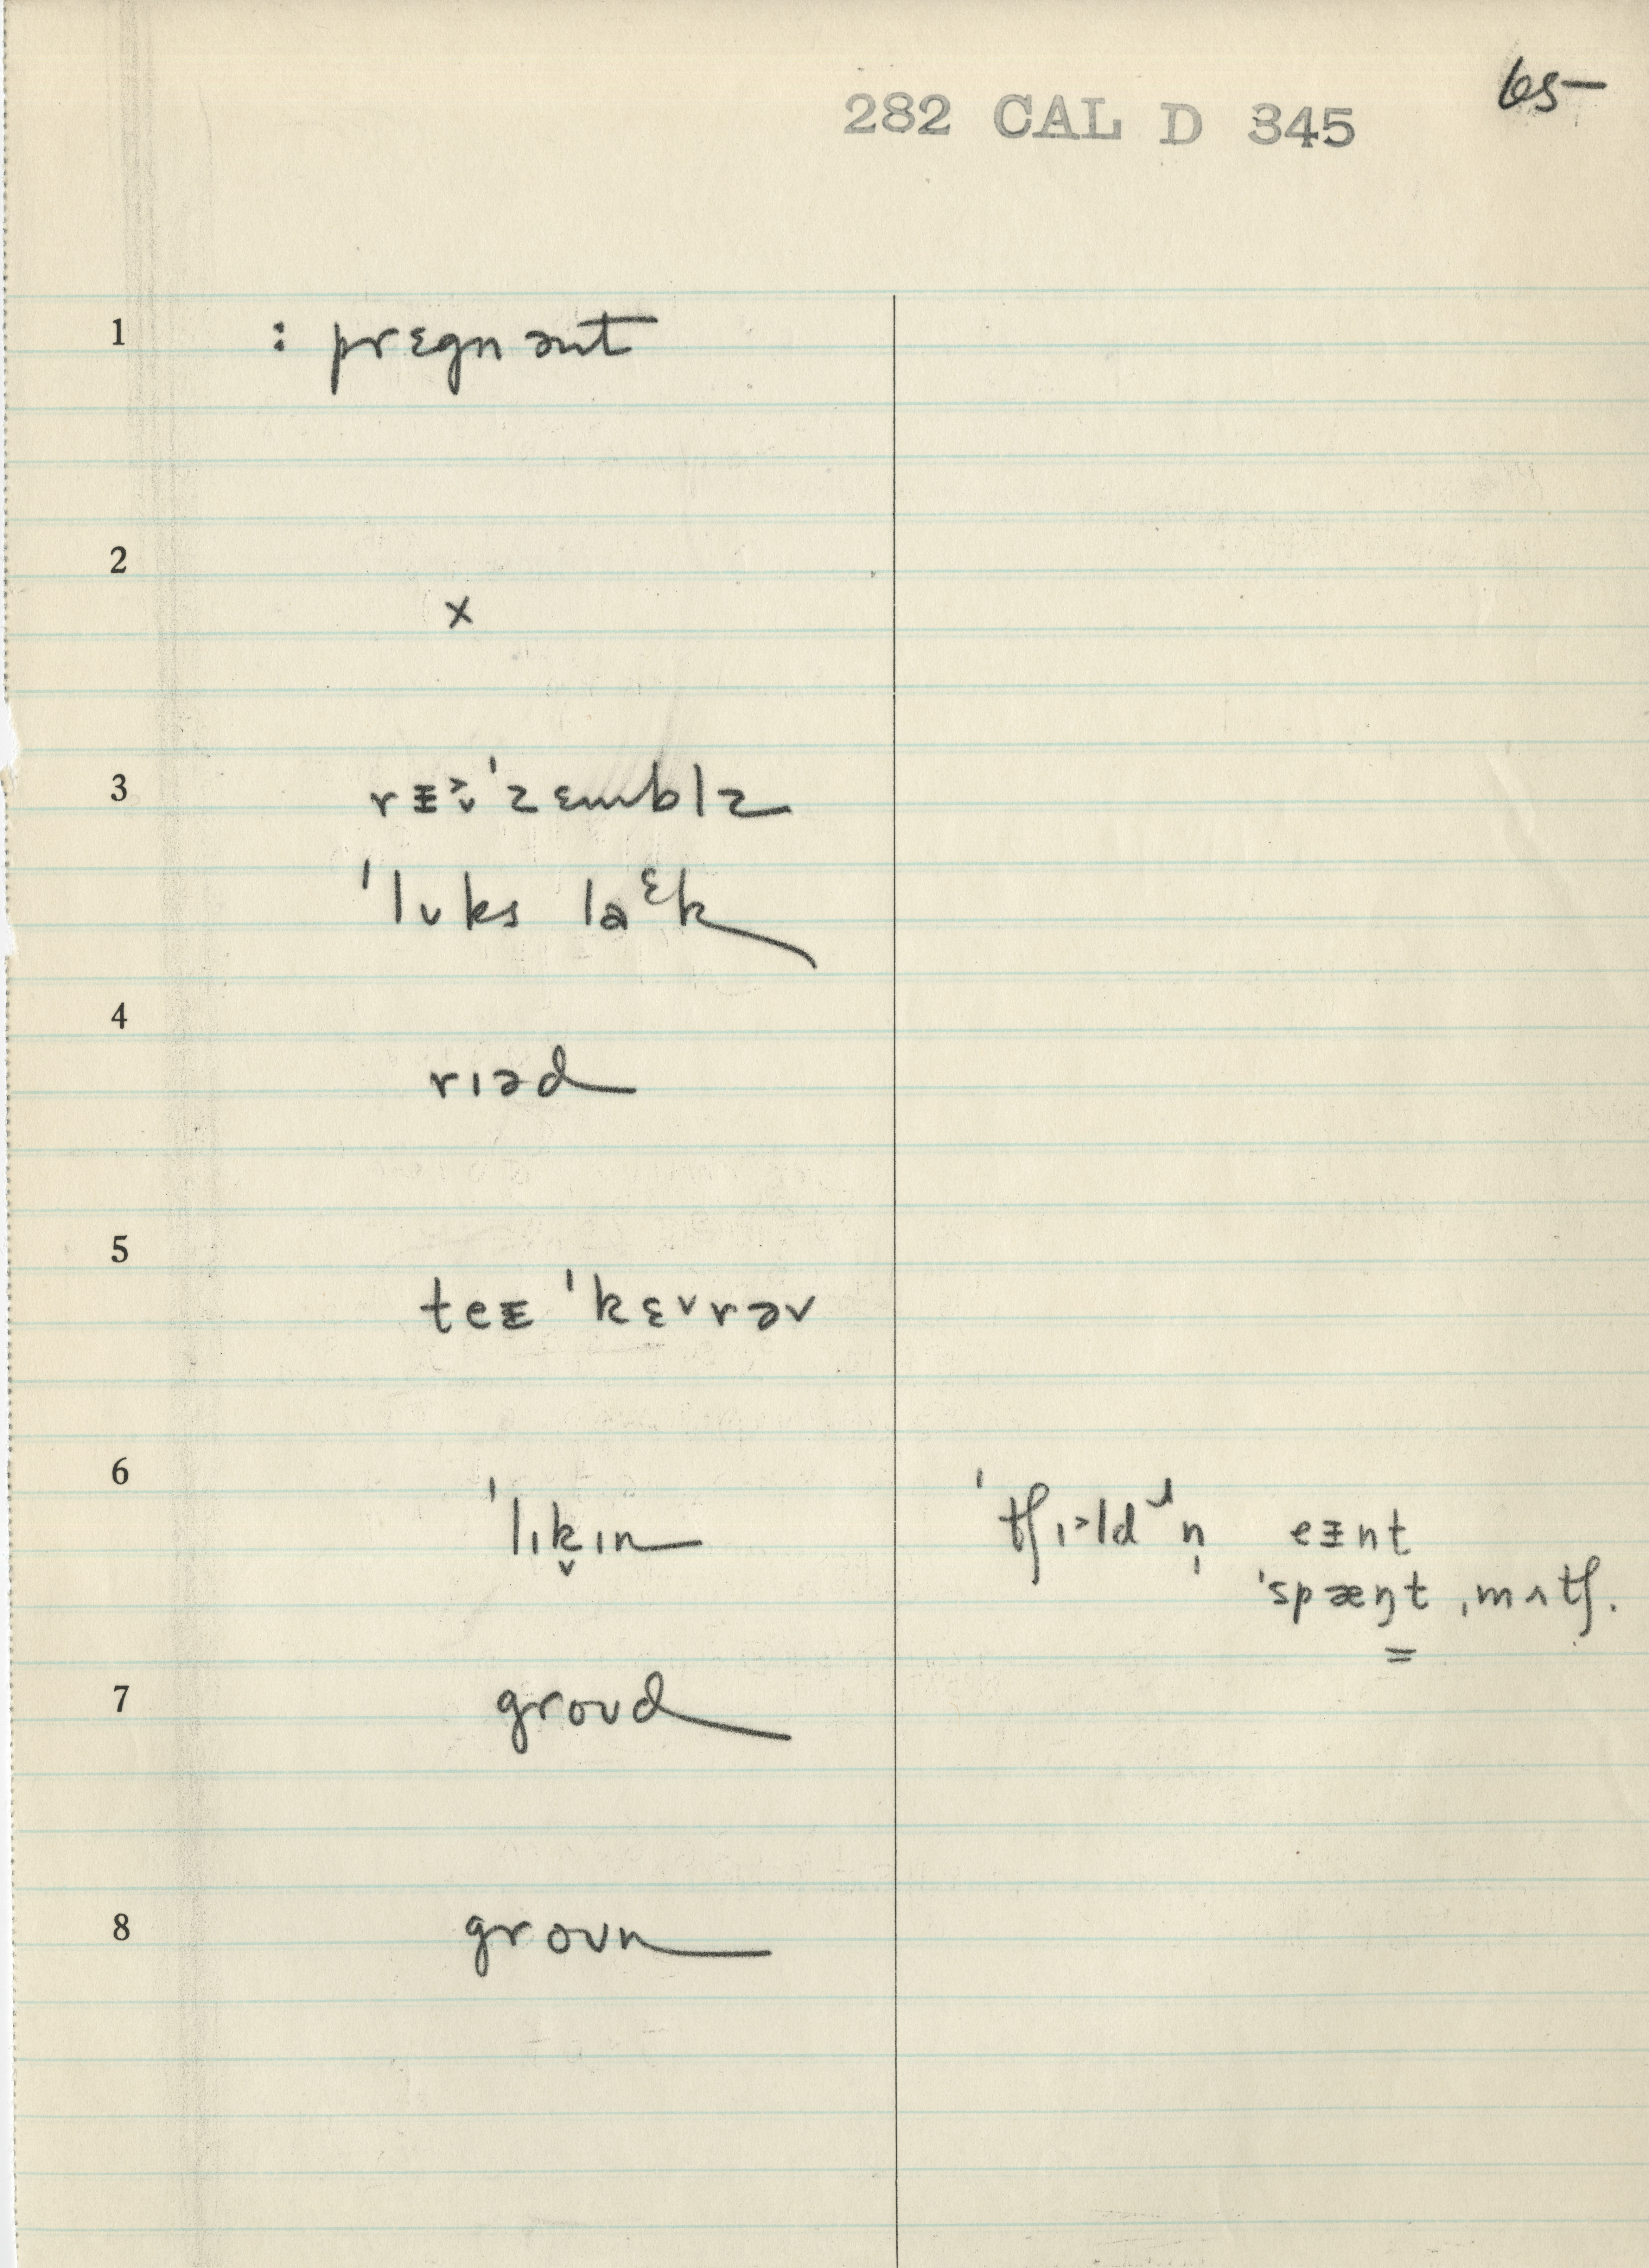 65
282 CAL D 345
1 : prɛgnənt
2 x
3 rᵻ˃̬ˈzɛmblz
ˈlʊks laᵋk
4 rɪəd
5 teᵻ ˈkɛ˅rəv
6 ˈlɪk̬ɪn ˈtʃɪ˃ldɹn̩ eᵻnt
ˈspæŋt ˌmʌtʃ.
=
7 groʊd
8 groʊn